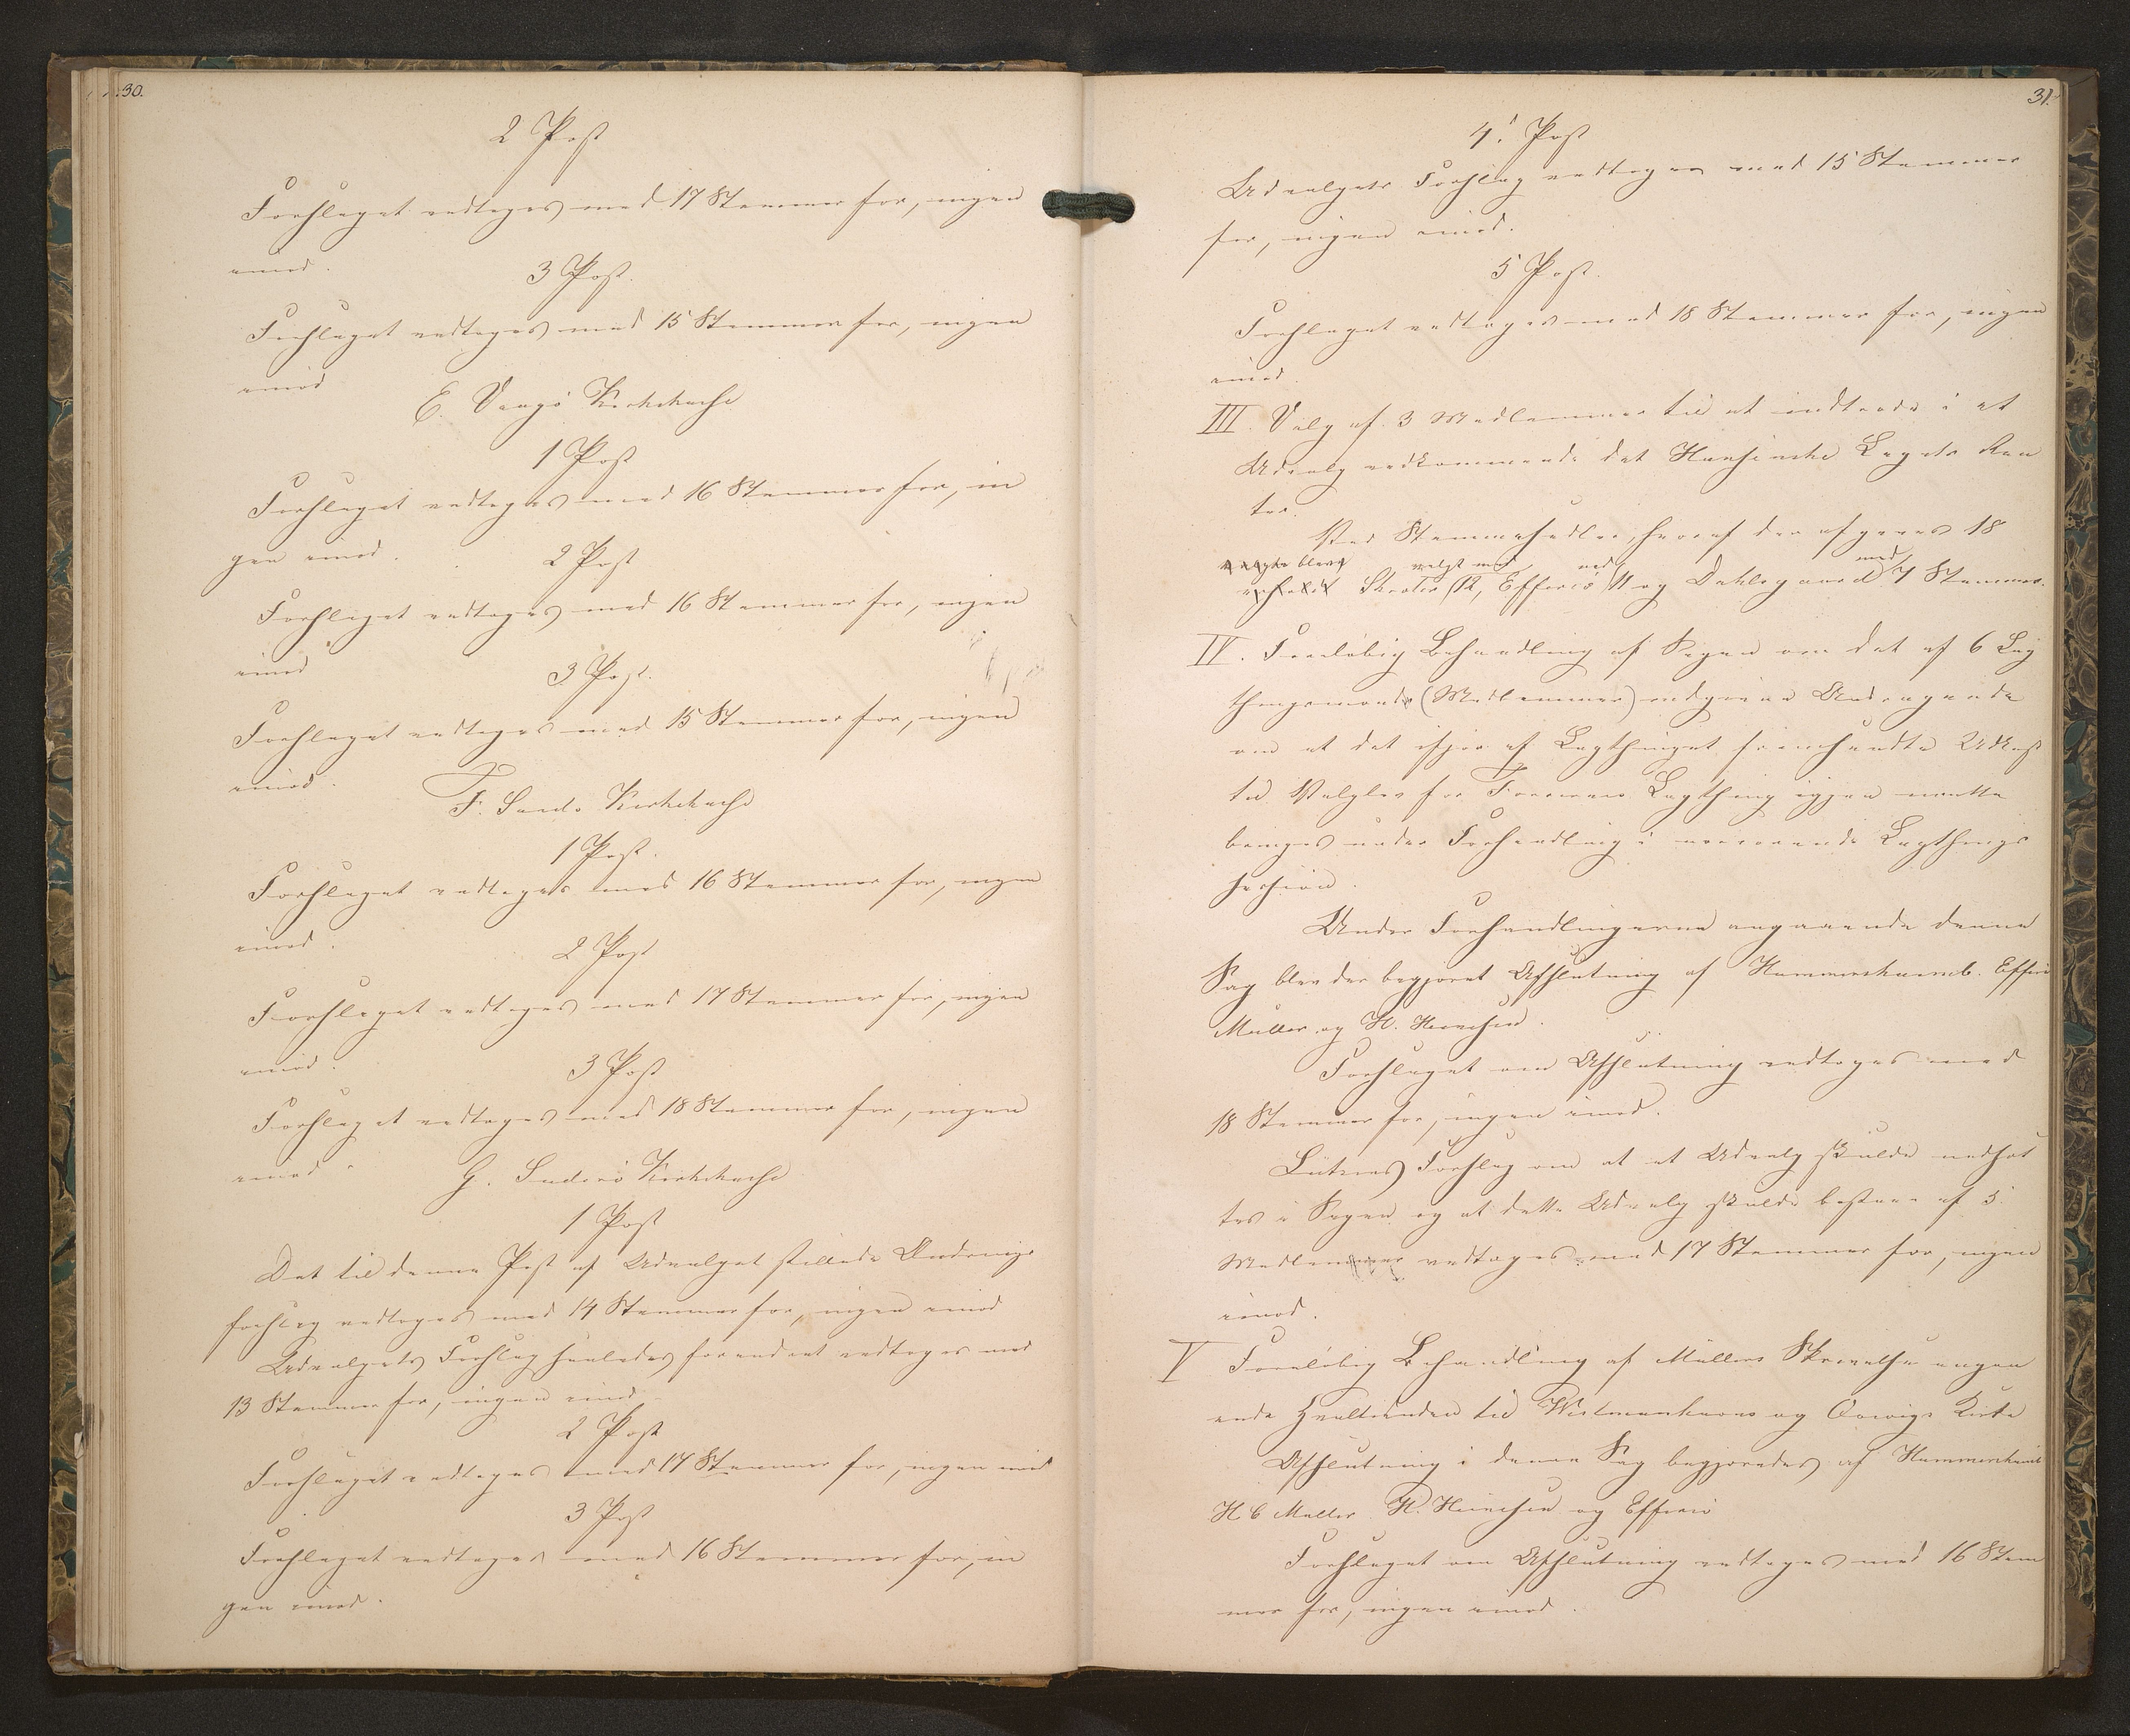 30.
2 Post
Forslaget vedtoges med 17 Stemmer for, ingen
imod.
3 Post.
Forslaget vedtoges med 15 Stemmer for, ingen
imod
E. Vaagø Kirkekasse
1 Post
Forslaget vedtoges med 16 Stemmer for, in
gen imod.
2 Post
Forslaget vedtoges med 16 Stemmer for, ingen
imod
3 Post.
Forslaget vedtoges med 15 Stemmer for, ingen
imod.
F. Sandø Kirkekasse
1 Post.
Forslaget vedtoges med 16 Stemmer for, ingen
imod.
2 Post
Forslaget vedtoges med 17 Stemmer for, ingen
imod.
3 Post
Forslaget vedtoges med 18 Stemmer for, ingen
imod.
G. Suderø Kirkekasse
1 Post
Det til denne Post af Udvalget stillede Ændrings
forslag vedtoges med 14 Stemmer for, ingen imod
Udvalgets Forslag saaledes forandret vedtoges med
13 Stemmer for, ingen imod
2 Post
Forslaget vedtoges med 17 Stemmer for, ingen imod
3 Post
Forslaget vedtoges med 16 Stemmer for, in
gen imod.
31.
4. Post
Udvalgets Forslag vedtoges med 15 Stemmer
for, ingen imod.
5 Post.
Forslaget vedtoges med 18 Stemmer for, ingen
imod.
III. Valg af 3 Medlemmer til at indtræde i et
Udvalg vedkommende det Hansenske Legats Ren
ter.
Ved Stemmesedler, hvoraf der afgaves 18
blev valgt med med med
Skrøter 12, Effersø 11 og Dahlsgaard 7 Stemmer.
IV. Foreløbig Behandling af Sagen om det af 6 Lag
thingsmænd (Medlemmer) indgivne Andragende
om at det ifjor af Lagthinget fremsendte Udkast
til Valglov for Færøernes Lagthing igjen maatte
bringes under Forhandling i nærværende Lagthings
session.
Under Forhandlingerne angaaende denne
Sag blev der begjæret Afslutning af Hammershaimb. Effersø
Müller og H. Heinesen.
Forslaget om Afslutning vedtoges med
18 Stemmer for, ingen imod.
Lützens Forslag om at et Udvalg skulde nedsæt
tes i Sagen og at dette Udvalg skulde bestaae af 5
Medlemmer vedtoges med 17 Stemmer for, ingen
imod.
V Foreløbig Behandling af Müllers Skrivelse angaa
ende Hvaltienden til Westmanhavns og Qvivigs Kirke
Afslutning i denne Sag begjæredes af Hammershaimb
H C Müller H. Heinesen og Effersø
Forslaget om Afslutning vedtoges med 16 Stem
mer for, ingen imod.